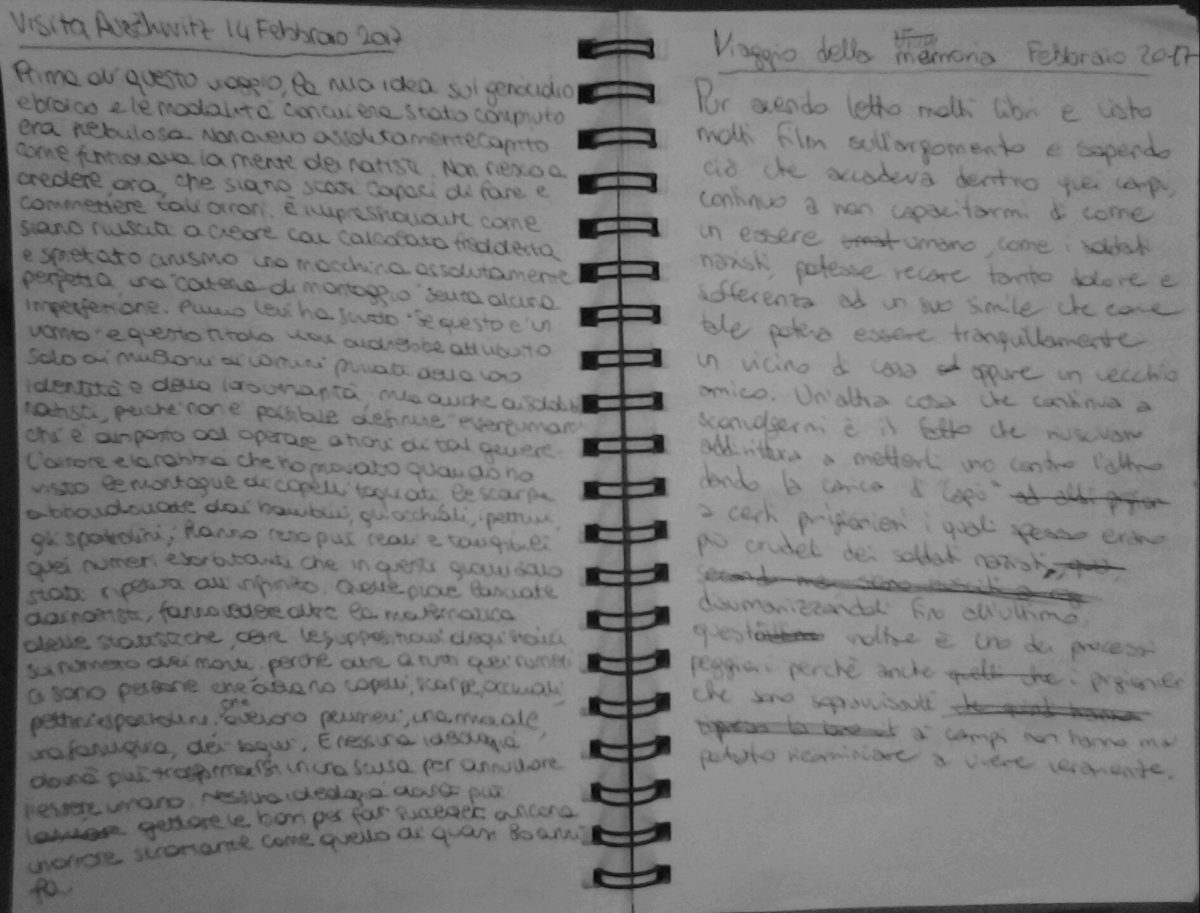 Visita Auschwitz 14 Febbraio 2017
Prima di questo viaggio, la mia idea sul genocidio
ebraico e le modalità con cui era stato compiuto
era nebulosa. Non avevo assolutamente capito
come funzionava la mente dei nazisti. Non riesco a
credere, ora, che siano stati capaci di fare e
commettere tali orrori. È impressionante come
siano riusciti a creare con calcolata freddezza
e spietato cinismo una macchina assolutamente
perfetta una "catena di montaggio" senza alcuna
imperfezione. Primo Levi ha scritto "Se questo è un
uomo" e questo titolo non andrebbe attribuito
solo ai milioni di uomini privati della loro
identità e della loro umanità, ma anche ai soldati
nazisti, perché non è possibile definire "essere umano"
chi è disposto ad operare azioni di tal genere.
L'orrore e la rabbia che ho provato quando ho
visto le montagne di capelli tagliati, le scarpe
abbandonate dai bambini, gli occhiali, i pettini,
gli spazzolini, hanno reso più reali e tangibili
quei numeri esorbitanti che in questi giorni sono
stati ripetuti all'infinito. Quelle prove lasciate
dai nazisti, fanno vedere oltre la matematica
delle statistiche, oltre le supposizioni degli storici
sul numero dei morti, perché oltre a tutti quei numeri
ci sono persone che avevano capelli, scarpe, occhiali,
pettini e spazzolini, che avevano pensieri, una morale,
una famiglia, dei sogni. E nessuna ideologia
dovrà più trasformarsi in una scusa per annullare
l'essere umano. Nessuna ideologia dovrà più
gettare le basi per far succedere ancora
un orrore straziante come quello di quasi 80 anni
fa.
Viaggio della memoria Febbraio 2017
Pur avendo letto molti libri e visto
molti film sull'argomento e sapendo
ciò che accadeva dentro quei campi,
continuo a non capacitarmi di come
un essere umano, come i soldati
nazisti, potesse recare tanto dolore e
sofferenza ad un suo simile che come
tale poteva essere tranquillamente
un vicino di casa oppure un vecchio
amico. Un'altra cosa che continua a
sconvolgermi è il fatto che riuscivano
addirittura a metterli uno contro l'altro
dando la carica di "capò" ad altri prigion
a certi prigionieri i quali spesso erano
più crudeli dei soldati nazisti, quì
secondo me, sono riusciti a
disumanizzandoli fino all'ultimo.
quest inoltre è uno dei processi
peggiori perché anche quelli che i prigionieri
che sono sopravvissuti che quindi hanno
ripreso la ai campi non hanno mai
potuto ricominciare a vivere veramente.